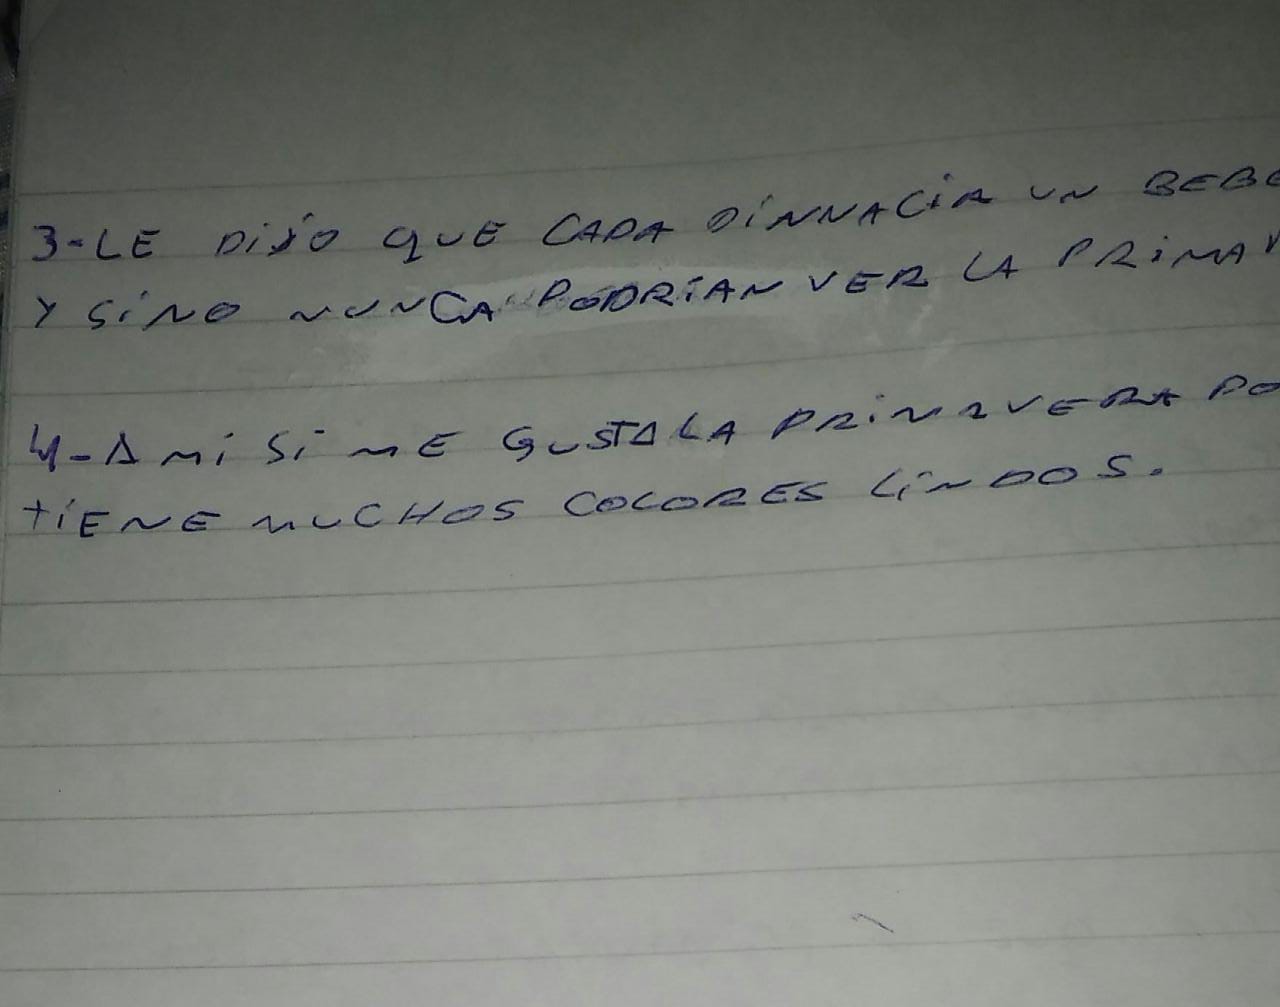 3-LE DIJO QUE CADA DINNACIA UN BEBE
Y SINO NUNCA PODRÍAN VER LA PRIMAV
4-A MI SI ME GUSTA LA PRIMAVERA PO
TIENE MUCHOS COLORES LINDOS.